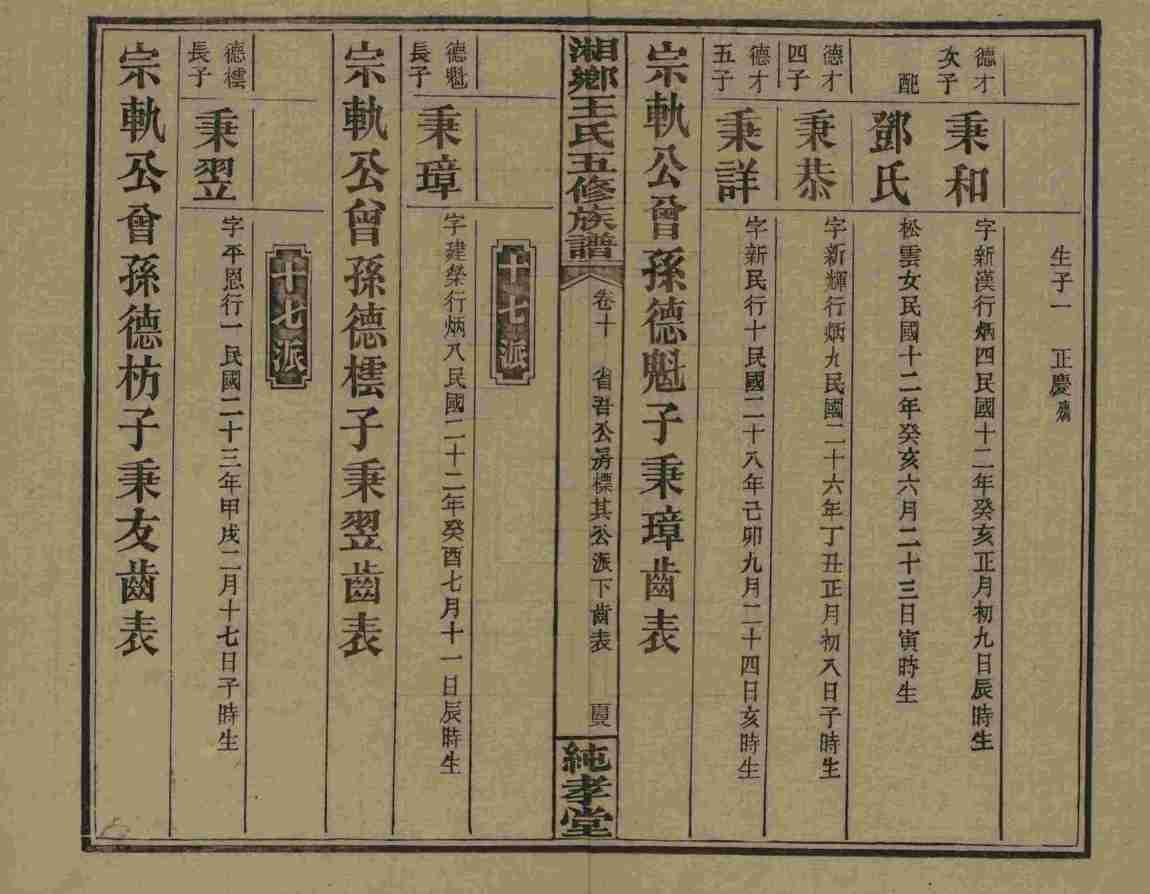 生子一 正慶
德才次子
秉和
字新漢行炳四民國十二年癸亥正月初九日辰時生
配
鄧氏
松雲女民國十二年癸亥六月二十三日寅時生
德才四子
秉恭
字新輝行炳九民國二十六年丁丑正月初八日子時生
德才五子
秉詳
字新民行十民國二十八年己卯九月二十四日亥時生
宗軌公曾孫德魁子秉璋齒表
湘鄉王氏五修族譜
卷十 省吾公房標其公派下齒表
純孝堂
十七派
德魁長子
秉璋
字建榮行炳八民國二十二年癸酉七月十一日辰時生
宗軌公曾孫德橒子秉翌齒表
十七派
德橒長子
秉翌
字平恩行一民國二十三年甲戌二月十七日子時生
宗軌公曾孫德枋子秉友齒表